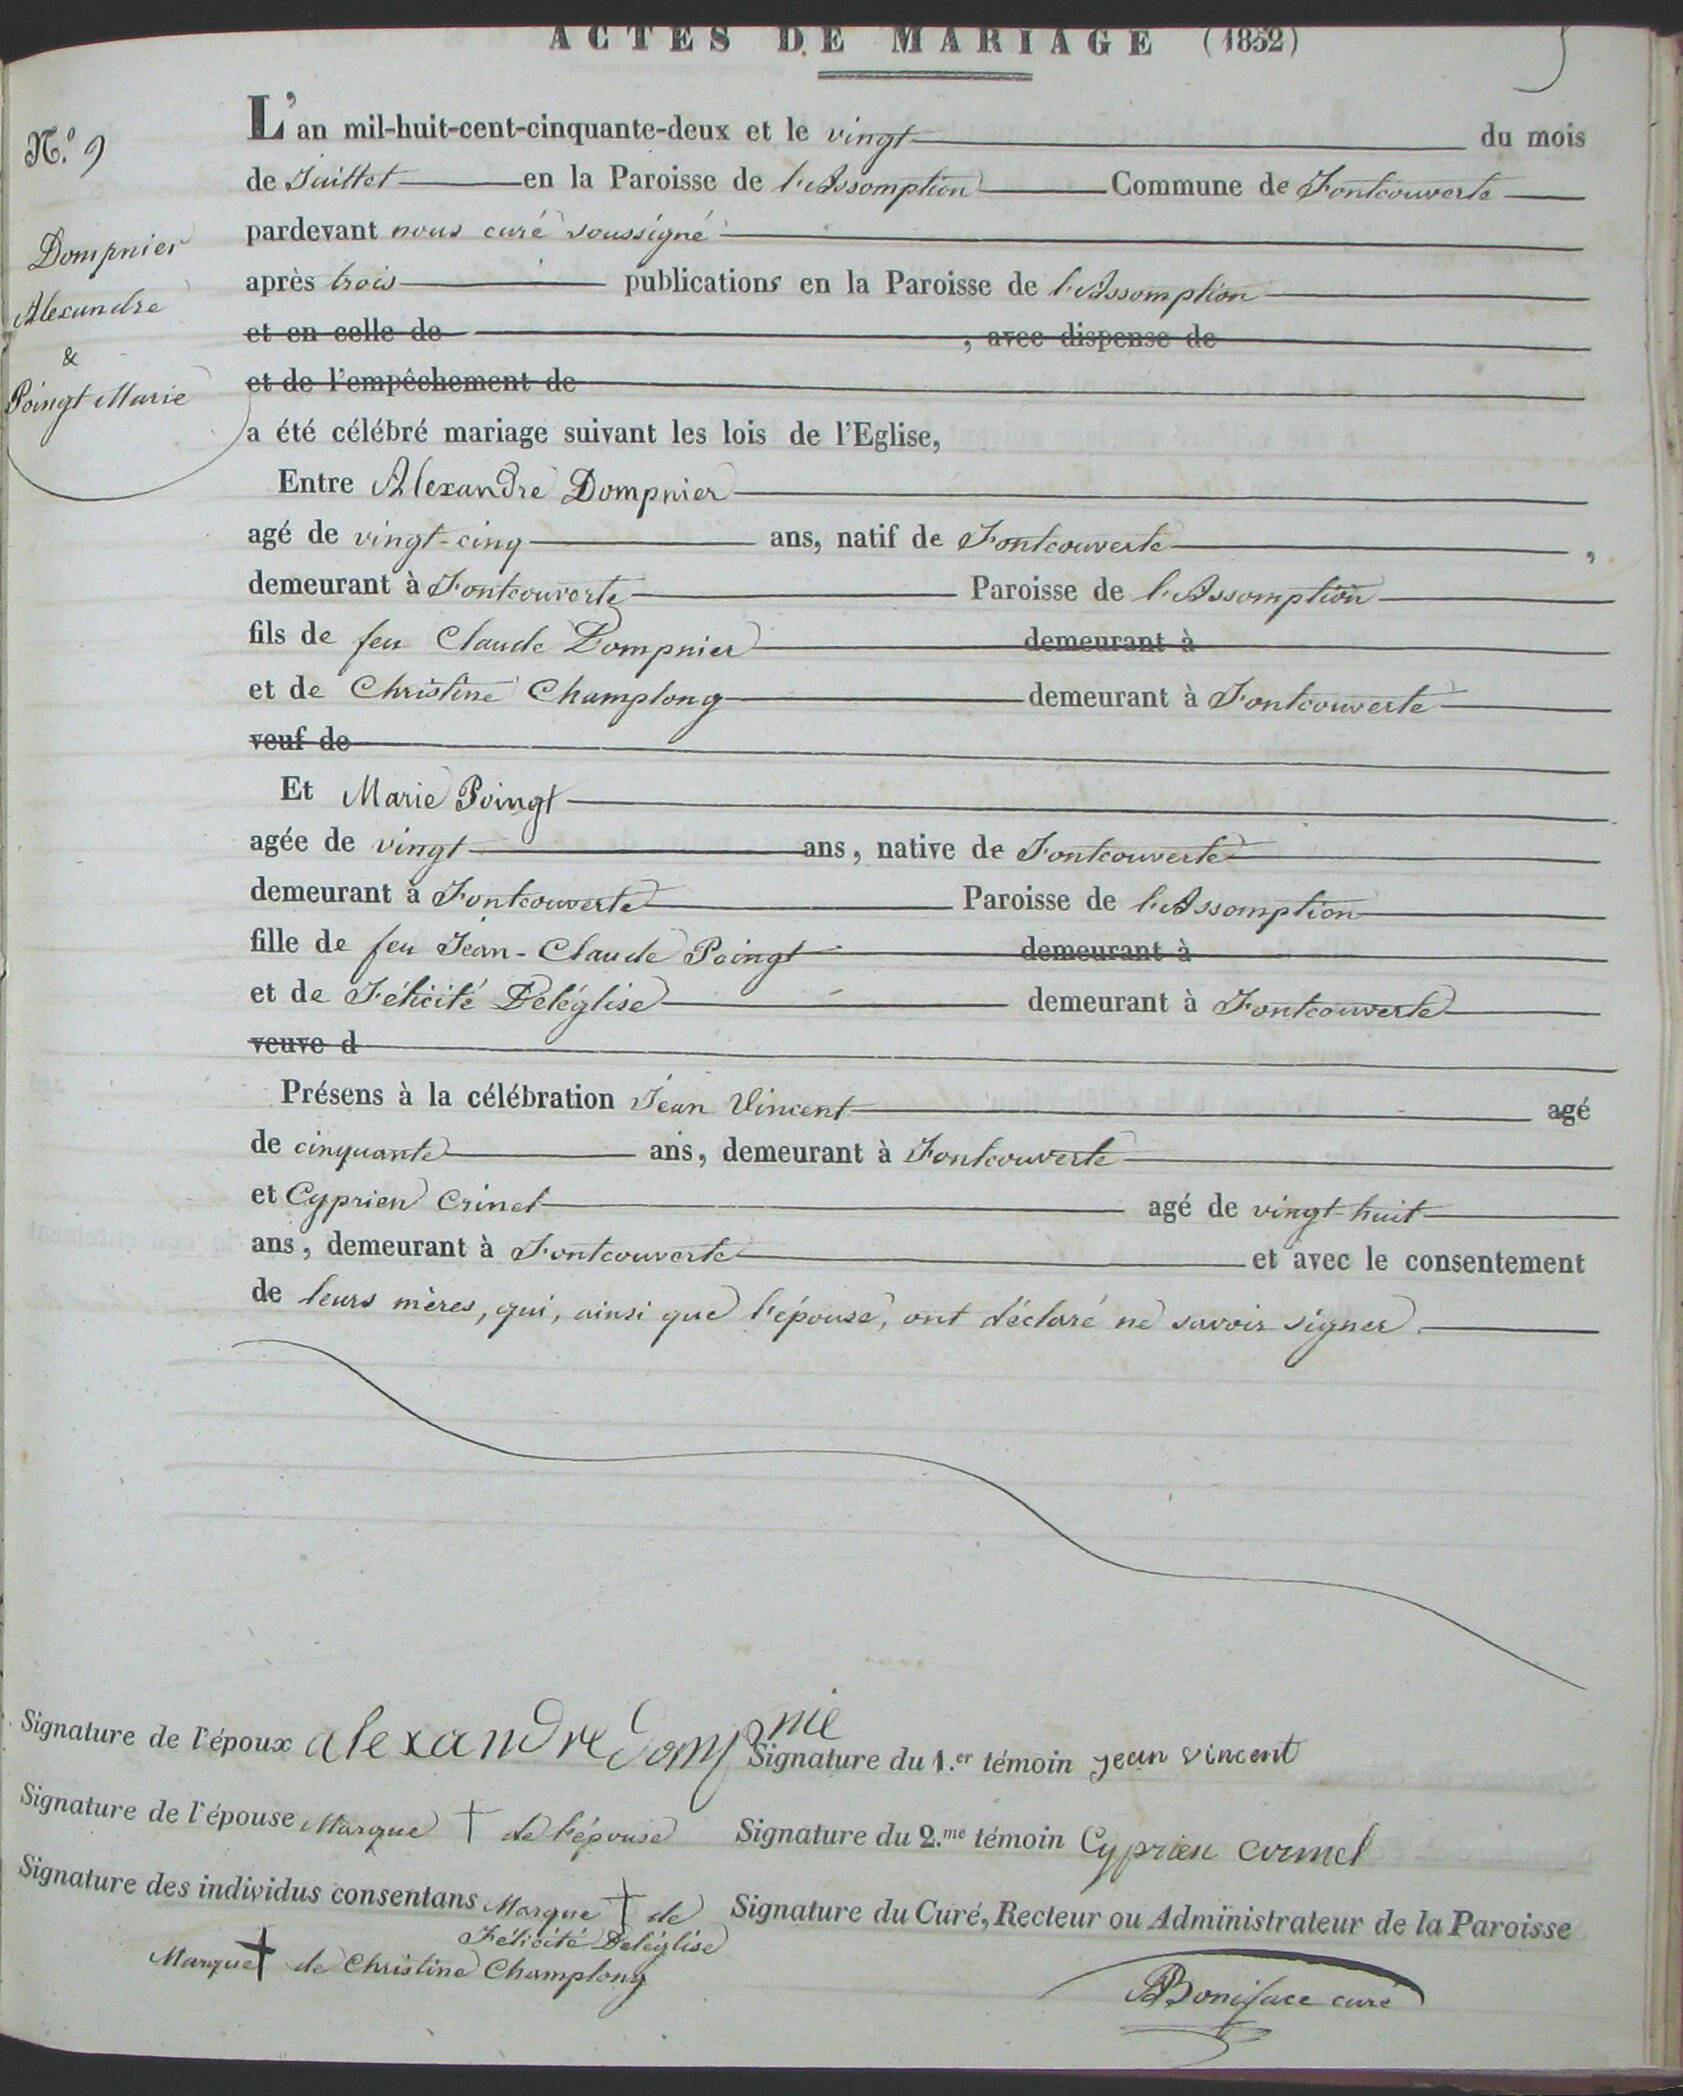 ACTES DE MARIAGE (1852)
N.º 9
Dompnier
Alexandre
&
Poingt Marie
L'an mil-huit-cent-cinquante-deux et le vingt du mois
de Juillet en la Paroisse de l'Assomption Commune de Fontcouverte
pardevant nous curé soussigné
après trois publications en la Paroisse de l'Assomption
et en celle de , avec dispense de
et de l'empêchement de
a été célébré mariage suivant les lois de l'Eglise,
Entre Alexandre Dompnier
agé de vingt-cinq ans, natif de Fontcouverte ,
demeurant à Fontcouverte Paroisse de l'Assomption
fils de feu Claude Dompnier demeurant à
et de Christine Champlong demeurant à Fontcouverte
veuf de
Et Marie Poingt
agée de vingt ans, native de Fontcouverte
demeurant à Fontcouverte Paroisse de l'Assomption
fille de feu Jean-Claude Poingt demeurant à
et de Félicité Déléglise demeurant à Fontcouverte
veuve d
Présens à la célébration Jean Vincent agé
de cinquante ans, demeurant à Fontcouverte
et Cyprien agé de vingt-huit
ans, demeurant à Fontcouverte et avec le consentement
de leurs mères, qui, ainsi que l'épouse, ont déclaré ne savoir signer.
Signature de l'époux alexandre Dompnie
Signature du 1.er témoin jean vincent
Signature de l'épouse Marque † de l'épouse
Signature du 2.me témoin Cyprien
Signature des individus consentans Marque † de
Félicité Deléglise
Marque † de Christine Champlong
Signature du Curé, Recteur ou Administrateur de la Paroisse
Boniface curé